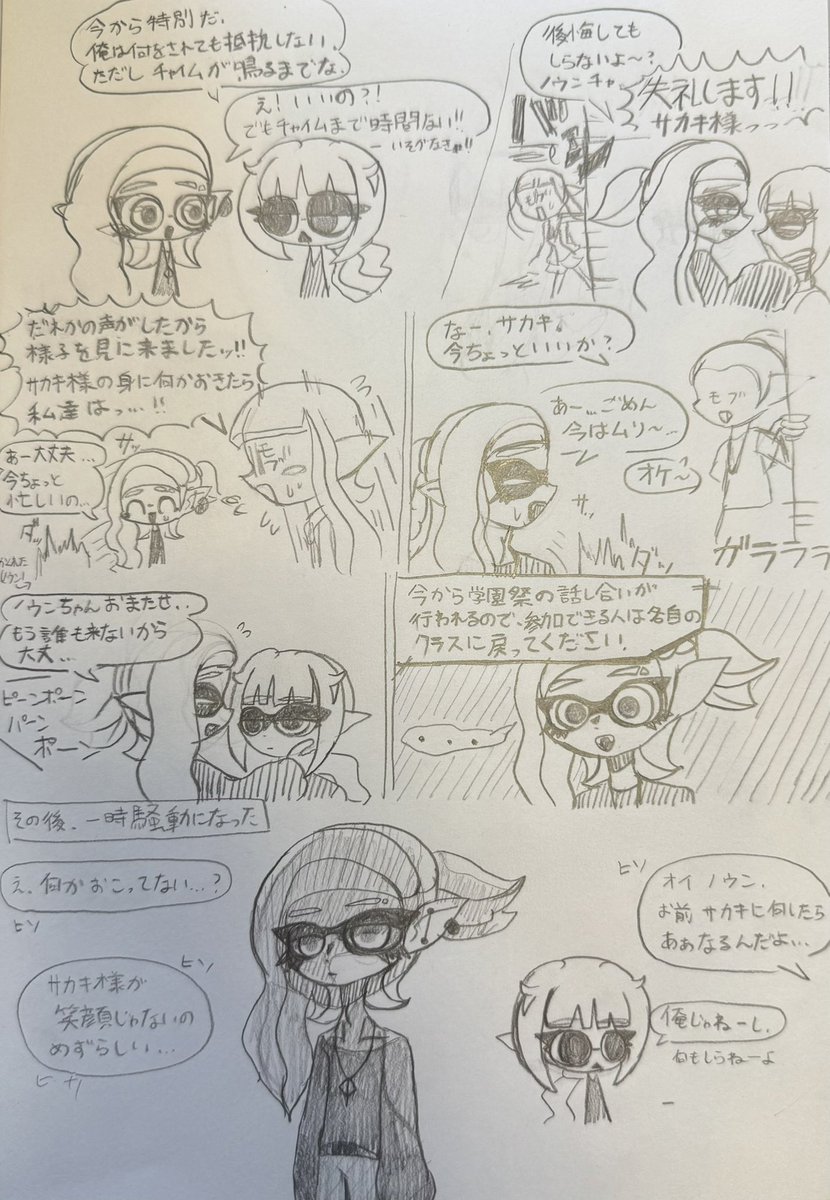 今から特別だ.
俺は何をされても抵抗しない.
ただし チャイムが鳴るまでな.
え!いいの?!
でもチャイムまで時間ない!!
ーいそがなきゃ!!
後悔しても
しらないよ〜?
ノウンチャ
失礼します!!
サカキ様っっ
モブ
だれかの声がしたから
様子を見に来ましたッ!!
サカキ様の身に何かおきたら
私達はっ…!!
モブ
あー大丈夫…
今ちょっと
忙しいの…
サッ
ダッ
なー、サカキ。
今ちょっといいか?
あー…ごめん
今はムリ〜…
オケ〜
モブ
サッ
ダッ
ガラララ
ノウンちゃんおまたせ..
もう誰も来ないから
大丈…
ピーンポーン
パーン
ポーン
今から学園祭の話し合いが
行われるので、参加できる人は各自の
クラスに戻ってください.
その後、一時騒動になった
え、何かおこってない…?
ヒソ
ヒソ
サカキ様が
笑顔じゃないの
めずらしい…
ヒソ
オイ ノウン.
お前 サカキに何したら
あぁなるんだよ…
俺じゃねーし.
何もしらねーよ